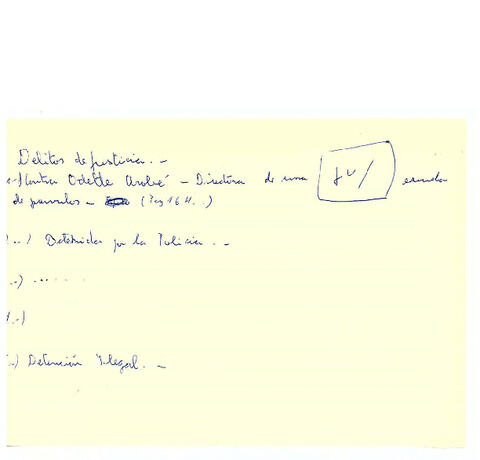 Delitos de justicia. -
.-) Contra Odette - Directora de una escuela
de parvulos - (Pag 164. .)
) ..) Detenidos por la Policia. . -
.-) .....
.-)
.-) Detención Ilegal. . -